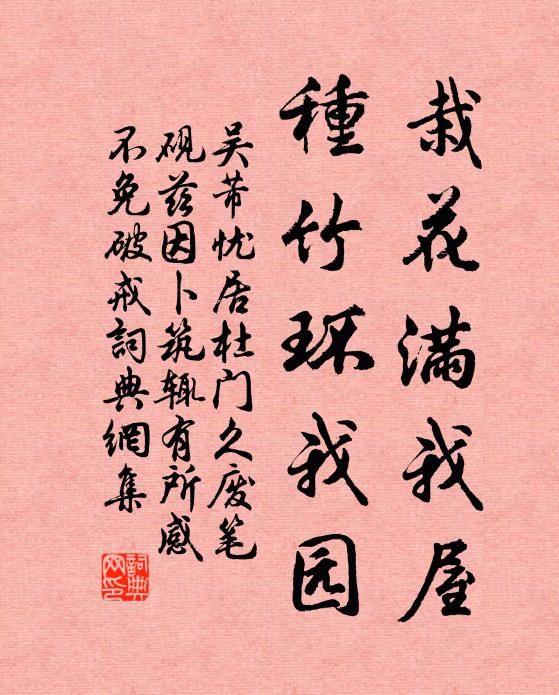 栽花满我屋
種竹环我园
吴芾忧居杜门久废笔
砚兹因卜筑辄有所感
不免破戒詞典網集
詞典
网印